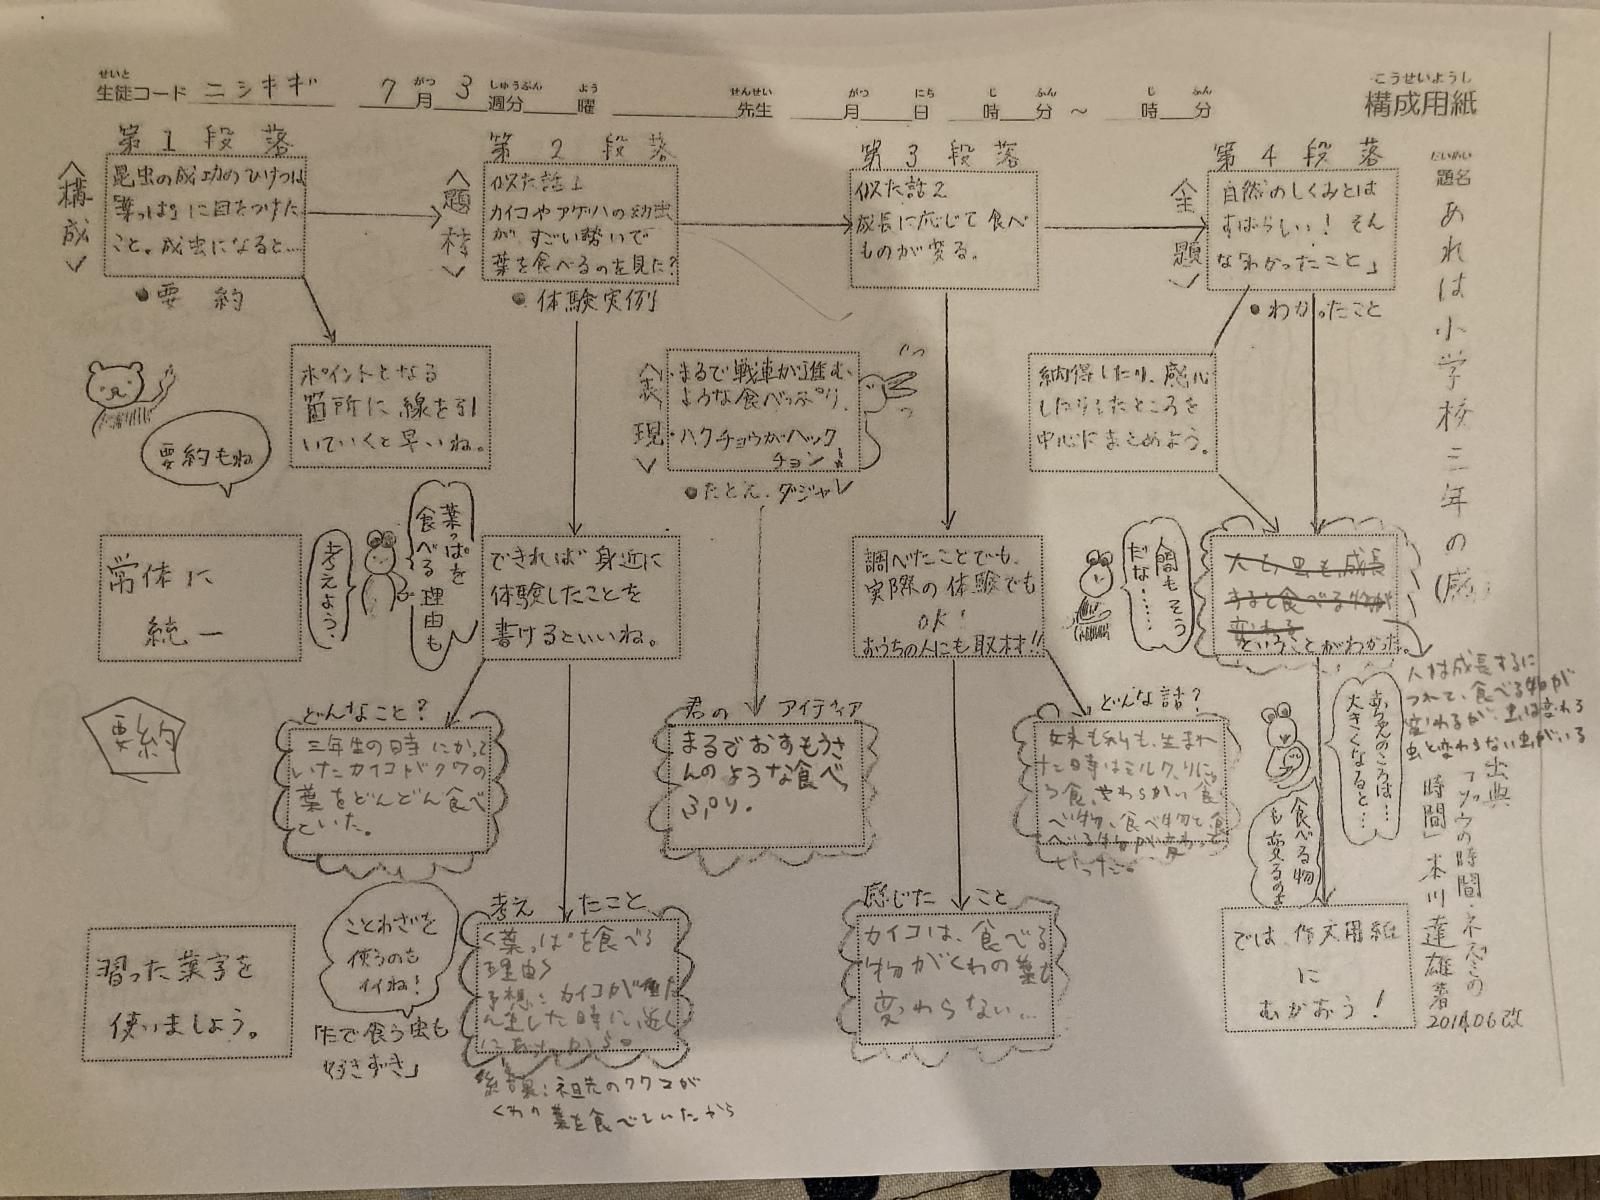 せいと
生徒コード ニシキギ 7月 3週分 曜 先生 月 日 時 分 ～ 時 分
がつ しゅうぶん よう せんせい がつ にち じ ふん じ ふん
こうせいようし
構成用紙
だいめい
題名
あれは小学校三年の(感)
出典
「ゾウの時間・ネズミの
時間」本川達雄著
2014.06改
第1段落
<構成>
昆虫の成功のひけつは
「葉っぱ」に目をつけた
こと。成虫になると…
●要約
ポイントとなる
箇所に線を引
いていくと早いね。
要約もね
常体に
統一
要約
習った漢字を
使いましょう。
第2段落
<題材>
似た話1
カイコやアゲハの幼虫
が すごい勢いで
葉を食べるのを見た?
●体験実例
葉っぱを
食べる理由も
考えよう、
できれば身近に
体験したことを
書けるといいね。
どんなこと?
三年生の時にかって
いたカイコがクワの
葉をどんどん食べ
ていた。
ことわざを
使うのも
イイね!
「たで食う虫も
好きずき」
考えたこと
<葉っぱを食べる
理由>
予想:カイコが
した時に近く
にあったから。
結果:祖先のクワコが
くわの葉を食べていたから
<表現>
・まるで戦車が進む
ような食べっぷり、
・ハクチョウがハック
チョン!
●たとえ.ダジャレ
君の アイディア
まるでおすもうさ
んのような食べ
っぷり。
第3段落
似た話2
成長に応じて食べ
ものが変る。
調べたことでも、
実際の体験でも
OK!
おうちの人にも取材!!
どんな話?
妹も私も、生まれ
た時はミルク、りにゅ
う食、やわらかい食
べ物、食べ物と食
べる物が変わって
いった。
感じたこと
カイコは、食べる
物がくわの葉も
変わらない…
第4段落
<全題>
自然のしくみとは
すばらしい! そん
な「わかったこと」
●わかったこと
納得したり、感心
したりしたところを
中心にまとめよう。
人間もそう
だな……
人も虫も成長
すると食べる物が
変わる
ということがわかった。
人は成長するに
つれて、食べる物が
変わるが、虫は変わる
虫と変わらない虫がいる
赤ちゃんのころは…
大きくなると…
食べる物
も変るのよ
では、作文用紙
に
むかおう!